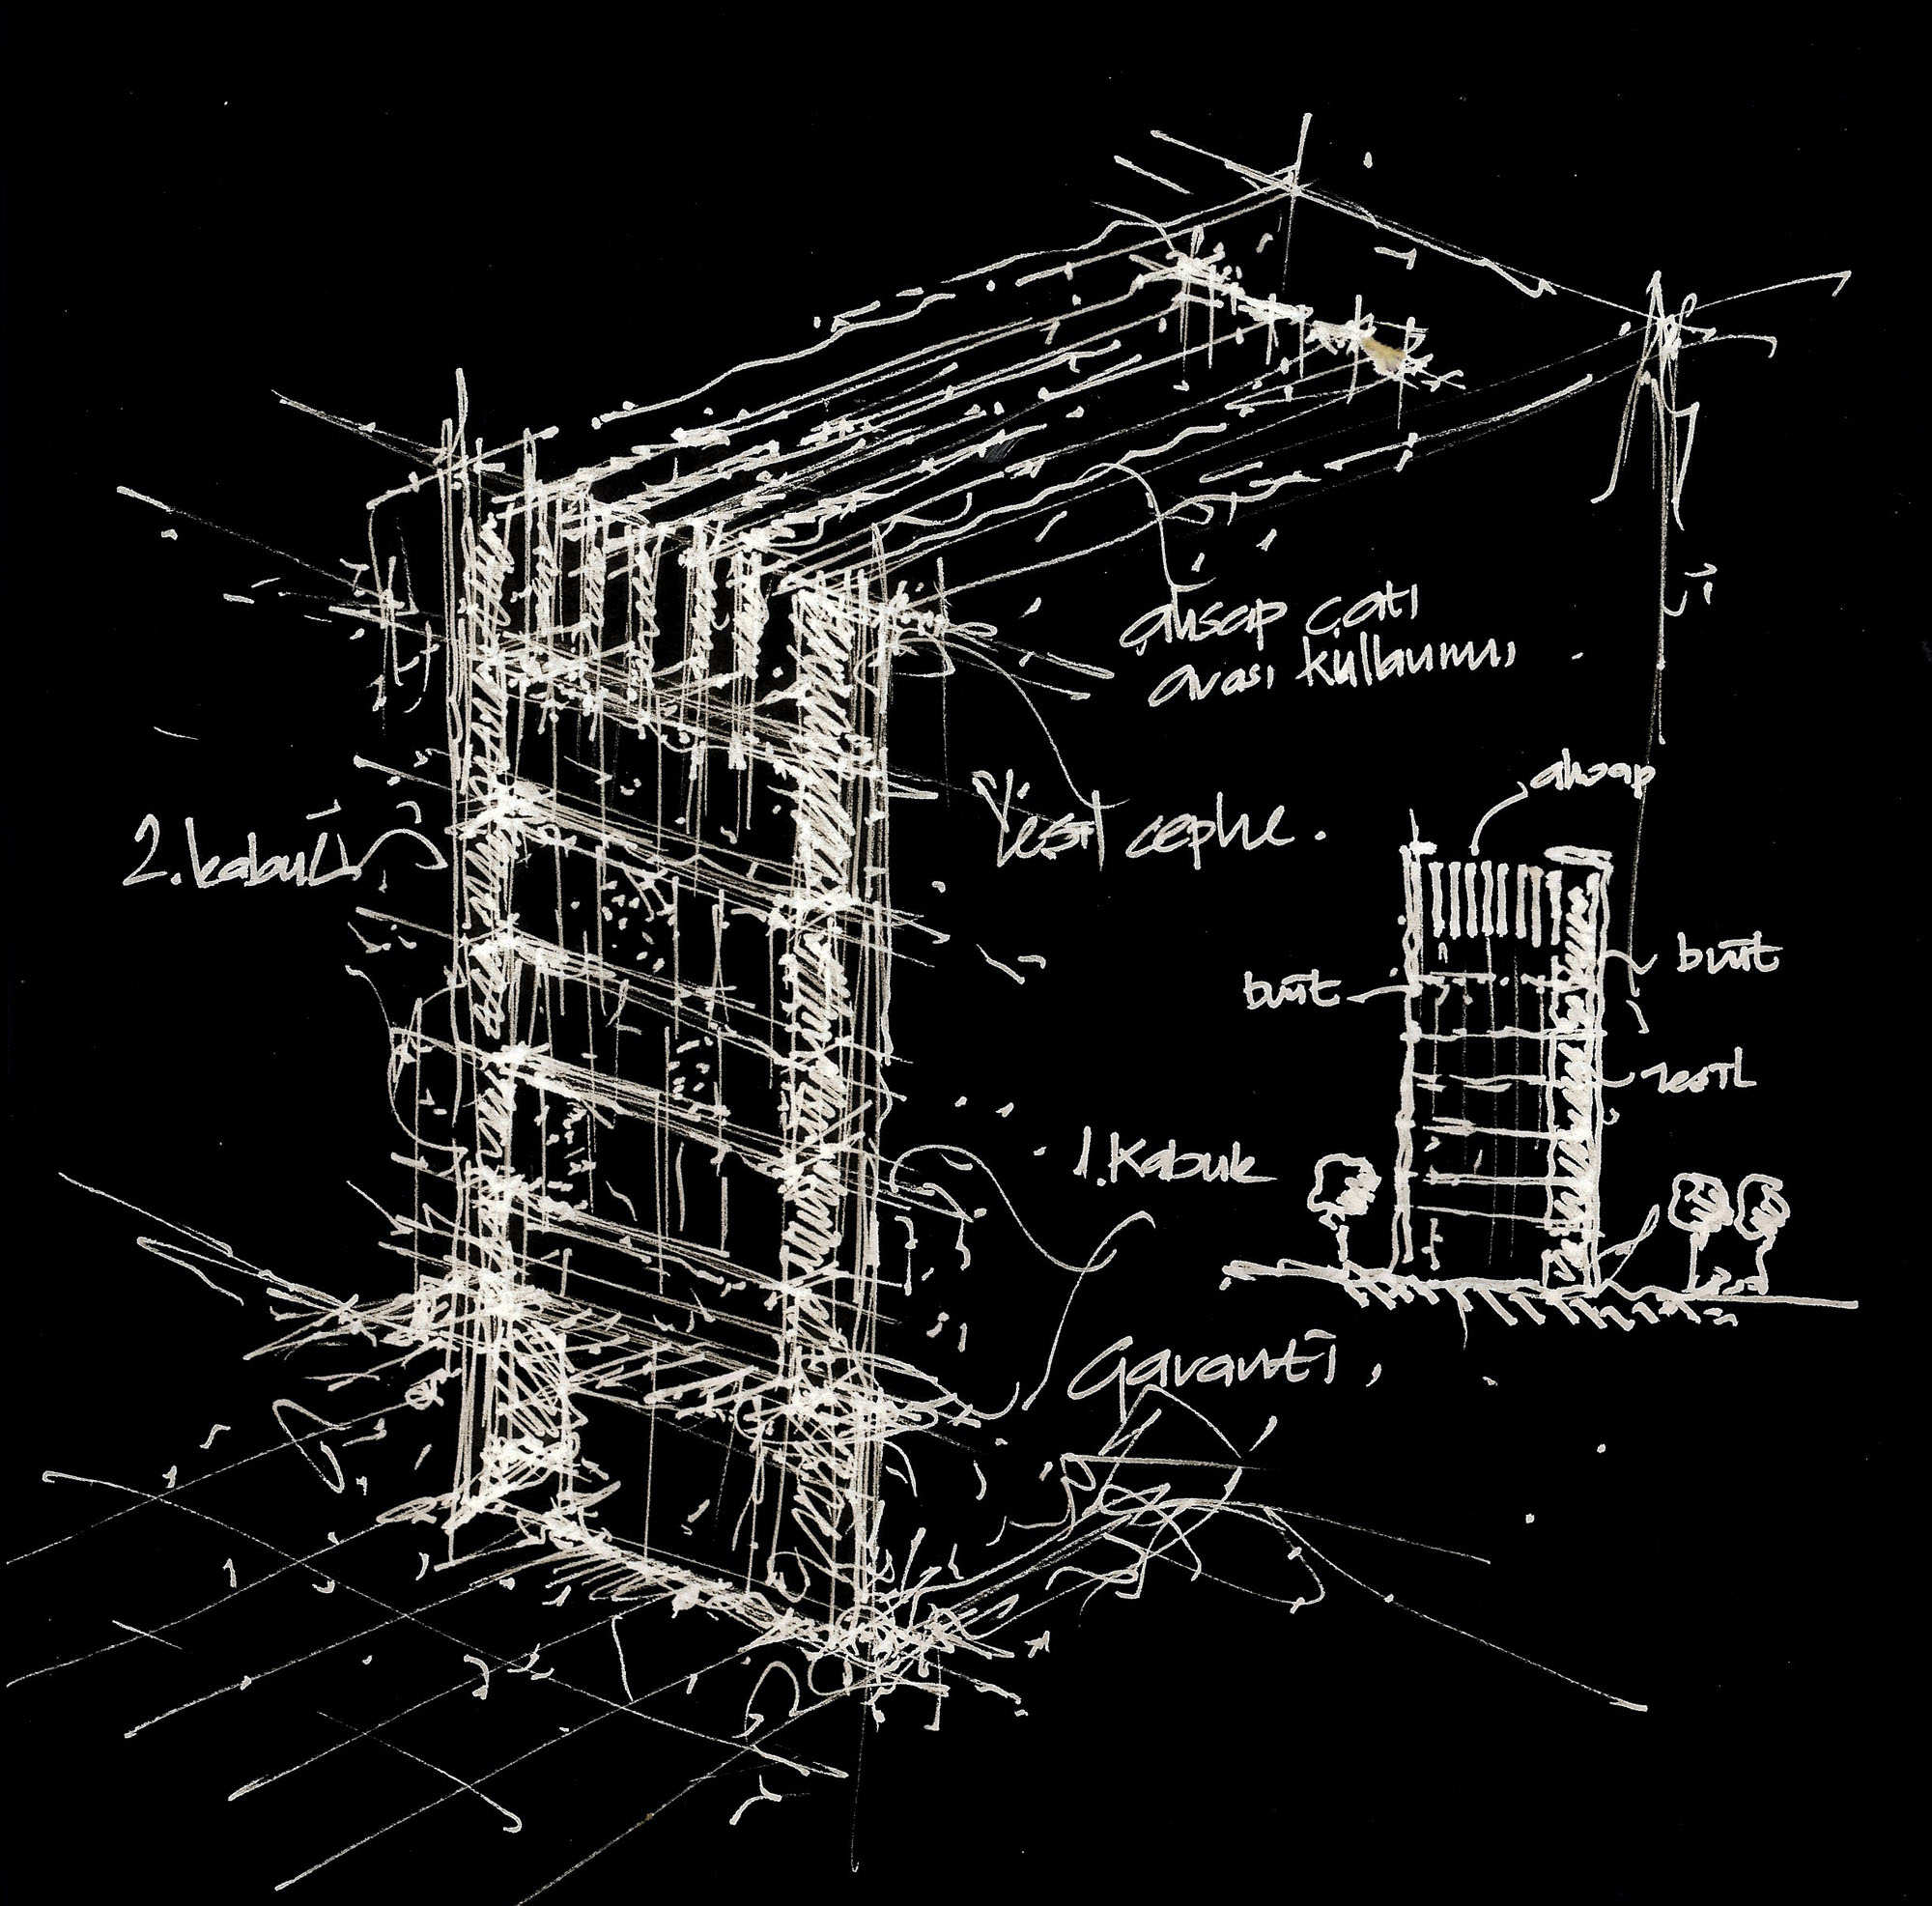 ahşap çatı
arası kullanımı
Yeşil cephe.
2. kabuk
ahşap
brüt
brüt
yeşil
1. Kabuk
Garanti,